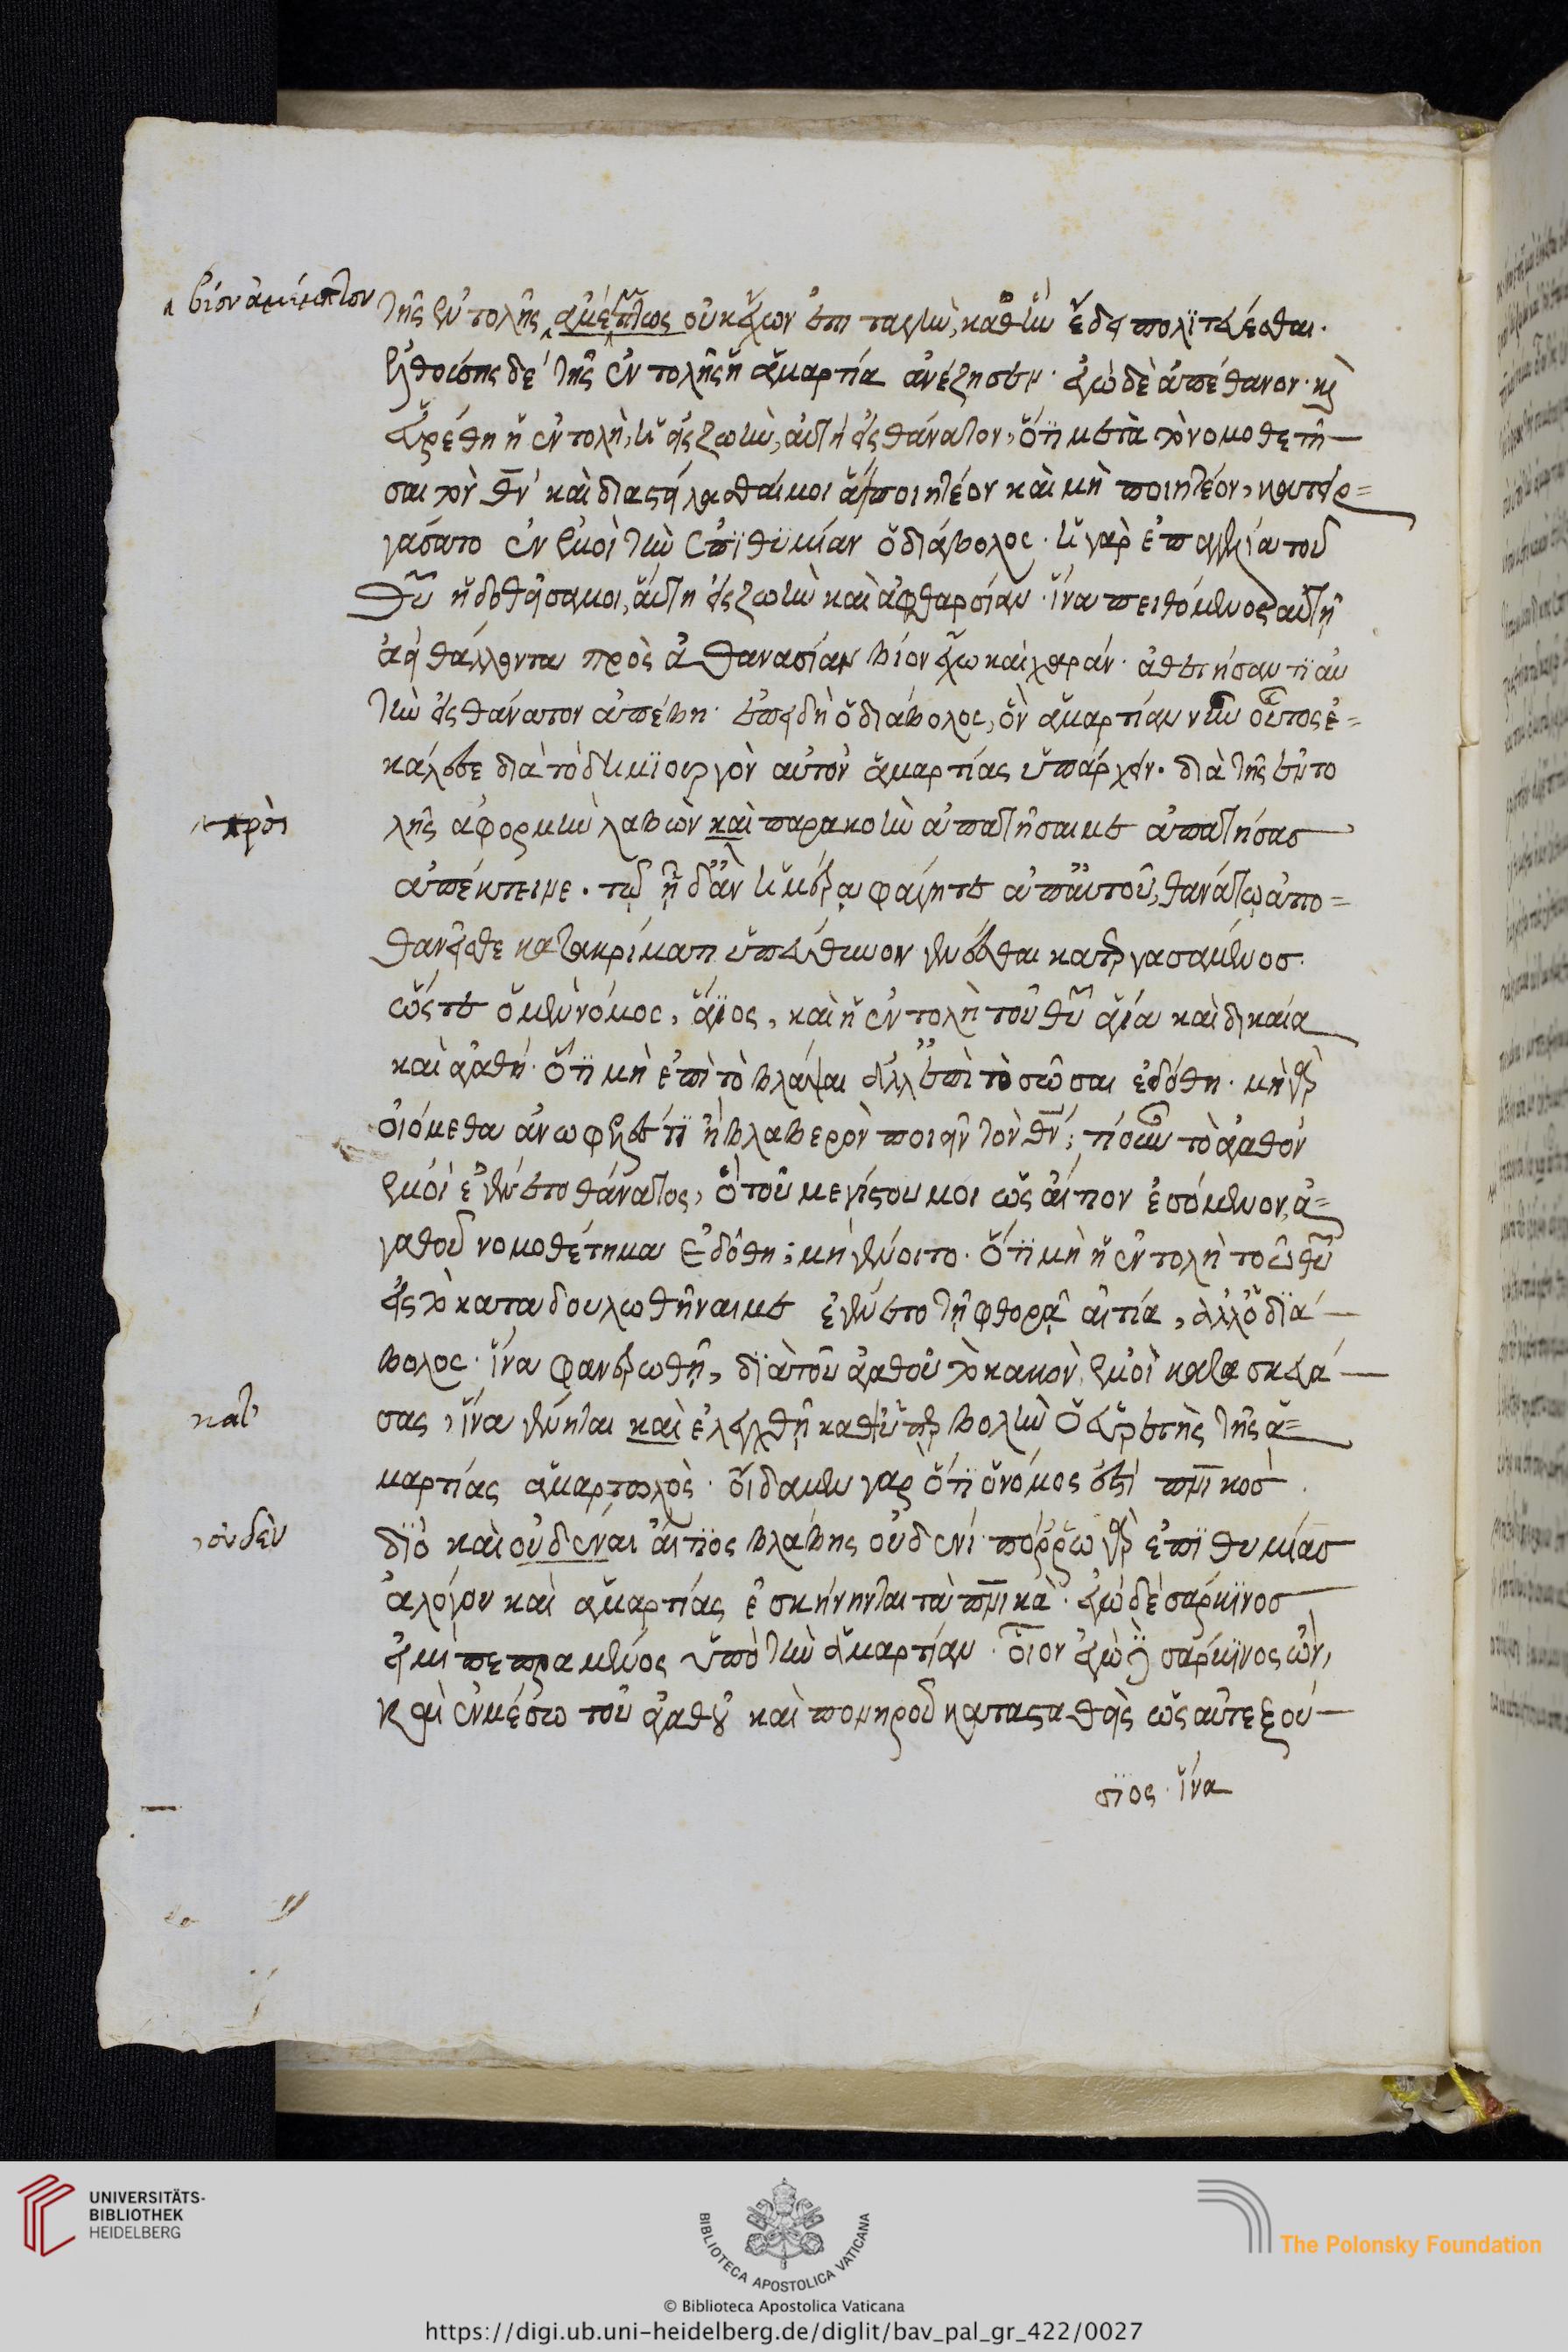 βίον ἀμεμπτον
τῆς ἐντολῆς ἀμέμπτως οὐκ ἔχων ἐπιταγὴν, καθ' ἣν ἔδει πολϊτεύεσθαι.
ἐλθούσης δὲ τῆς ἐντολῆς ἡ ἁμαρτία ἀνέζησεν. ἐγὼ δὲ ἀπέθανον. κὶ
εὑρέθη ἡ ἐντολὴ, ἡ εἰς ζωὴν, αὕτη εἰς θάνατον, ὅτϊ μετὰ τὸ νομοθετῆ
σαι τὸν θν̄ καὶ διαστείλασθαί μοι ποιητέον καὶ μὴ ποιητέον, κατειρ=
γάσατο ἐν ἐμοὶ τὴν ἐπϊθϋμίαν ὁ διάβολος. ἡ γὰρ ἐπαγγελία τοῦ
θῦ ἡ δοθεῖσα μοι, αὕτη εἰς ζωὴν καὶ ἀφθαρσίαν. ἵνα πειθόμενος αὐτῇ
ἀειθάλλοντα πρὸς ἀθανασίαν βίον ἔχω καὶ χαράν. ἀθετήσαντϊ αὐ
τὴν εἰς θάνατον ἀπέβη. ἐπειδὴ ὁ διάβολος, ὃν ἁμαρτίαν νῦν οὗτος ἐ=
κάλεσε διὰ τὸ δημϊουργὸν αὐτὸν ἁμαρτίας ὑπάρχειν. διὰ τῆς ἐντο
πρὸς
λῆς ἀφορμὴν λαβὼν καὶ παρακοὴν ἀπατῆσαι με ἀπατήσας
ἀπέκτεινε. τῷ ᾗ δ' ἂν ἡμέρᾳ φάγητε ἀπ' αὐτοῦ, θανάτῳ ἀπο=
θανεῖσθε κατακρίματι ὑπεύθυνον γενέσθαι κατεργασάμενος.
ὥστε ὁ μὲν νόμος, ἅγϊος, καὶ ἡ ἐντολὴ τοῦ θῦ ἁγία καὶ δικαία
καὶ ἀγαθή. ὅτϊ μὴ ἐπὶ τὸ βλάψαι ἀλλ' ἐπὶ τὸ σῶσαι ἐδόθη. μὴ γὰρ
οἰόμεθα ἀνωφελές τϊ ἢ βλαβερὸν ποιεῖν τὸν θν̄; τί οὖν τὸ ἀγαθόν
ἐμοὶ ἐγένετο θάνατος, ὃ τοῦ μεγίστου μοι ὡς αἴτιον ἐσόμενον, ἀ=
γαθοῦ νομοθέτημα ἐδόθη; μὴ γένοιτο. ὅτϊ μὴ ἡ ἐντολὴ τοῦ θῦ
εἰς τὸ καταδουλωθῆναι με ἐγένετο τῇ φθορᾷ αἰτία, ἀλλ' ὁ δϊά
βολος. ἵνα φανερωθῇ, δϊὰ τοῦ ἀγαθοῦ τὸ κακὸν, ἐμοὶ κατασκευά
κατ'
σας, ἵνα γένηται καὶ ἐλεγχθῇ καθ' ὑπερβολὴν ὁ εὑρετὴς τῆς ἁ=
μαρτίας ἁμαρτωλὸς. οἴδαμεν γὰρ ὅτϊ ὁ νόμος ἐστὶ πν̄ικός.
οὐδὲν
δϊὸ καὶ οὐδ εἶναι αἴτϊος βλάβης οὐδενί. πόρρω γὰρ ἐπϊθυμίας
ἀλόγου καὶ ἁμαρτίας ἐσκήνηνται τὰ πν̄ικὰ. ἐγὼ δὲ σάρκϊνος
εἰμι πεπραμένος ὑπὸ τὴν ἁμαρτίαν. οἷον ἐγὼ δὲ σάρκϊνος ὢν,
καὶ ἐν μέσῳ τοῦ ἀγαθοῦ καὶ πονηροῦ κατασταθεὶς ὡς αὐτεξού
σϊος. ἵνα
UNIVERSITÄTS-
BIBLIOTHEK
HEIDELBERG
BIBLIOTECA APOSTOLICA VATICANA
The Polonsky Foundation
© Biblioteca Apostolica Vaticana
https://digi.ub.uni-heidelberg.de/diglit/bav_pal_gr_422/0027